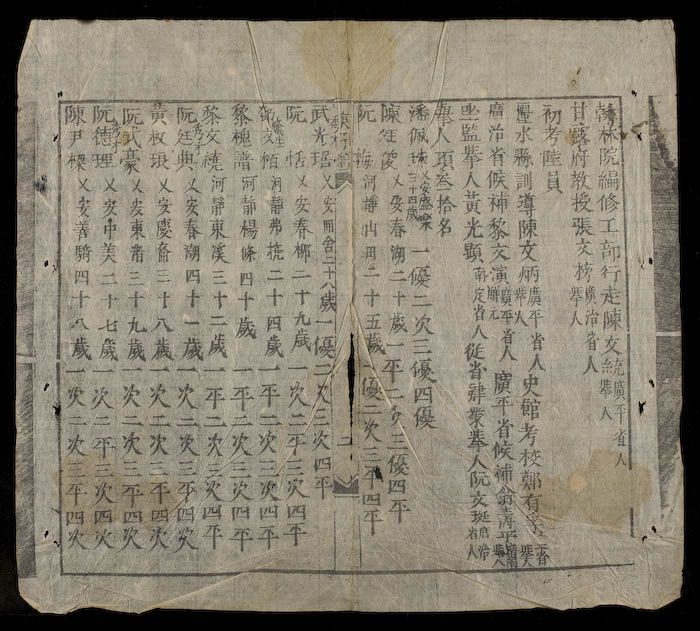 翰林院編修工部行走陳文統廣平省人舉人
甘露府教授張文榜廣治省人舉人
初考陸員
麗水縣訓導陳文炳廣平省人舉人 史館考校鄭有
廣治省候補黎文演廣平省人解元 廣平省候補翁壽
坐監舉人黃光顯南定省人 從省肄業舉人阮文
舉人頭叁拾名
潘佩珠乂安三十四歲 一優二次三優四優
陳 乂安春湖二十歲一平二次三優四平
阮梅河靜 田二十五歲一優二次三平四平
武光 秀才乂安 二十八歲一優二次三次四平
阮恬乂安春柳二十九歲一次二平三次四平
鄧文栢河靜弗 二十四歲一平二次三次四平
黎槐譜河靜楊條四十歲一平二次三平四平
黎文繞河靜東溪三十二歲一平二次三次四平
阮廷典秀才乂安春湖四十一歲一次二次三平四次
黃叔 乂安慶 三十八歲一次二次三平四次
阮武豪乂安東 三十九歲一次二次三平四次
阮德理秀才乂安中美二十七歲一次二平三次四次
陳尹樑乂安善騎四十八歲一次二次三平四次